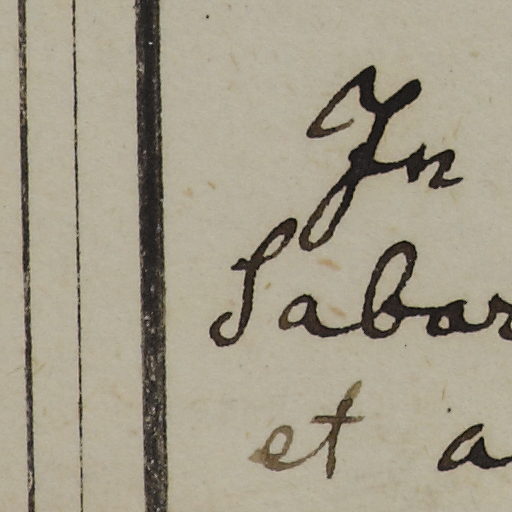 In
Sabar
et a